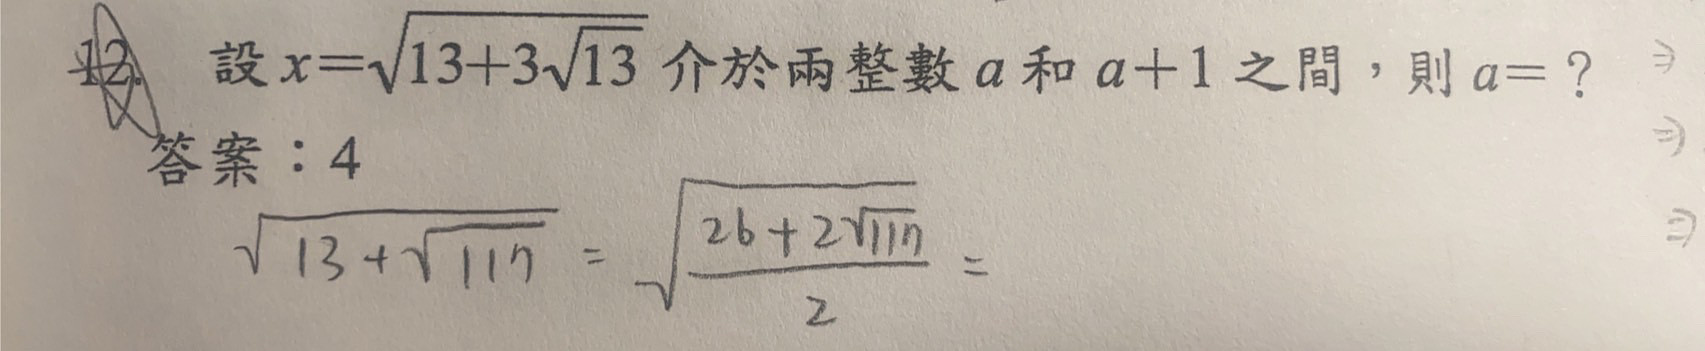 12. 設 x=√(13+3√13) 介於兩整數 a 和 a+1 之間，則 a=？ ⇒
答案：4 ⇒
√(13+√117) = √((26+2√117)/2) = ⇒